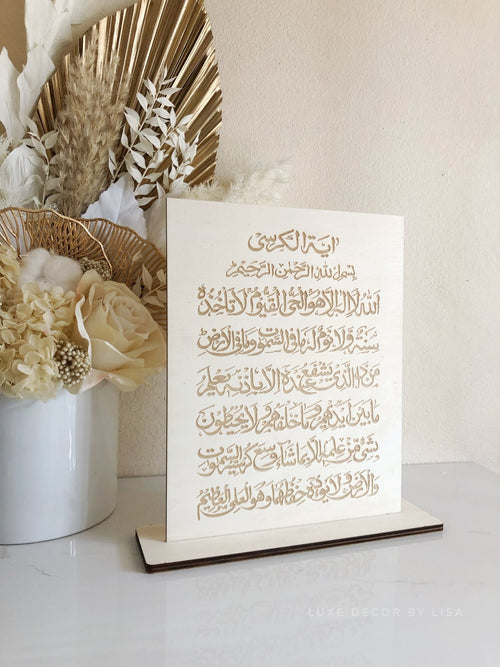 اية الكرسي
بسم الله الرحمن الرحيم
الله لا اله الا هو الحي القيوم لا تاخذه
سنة ولا نوم له ما في السموت وما في الارض
من ذا الذي يشفع عنده الا باذنه يعلم
ما بين ايديهم وما خلفهم ولا يحيطون
بشيء من علمه الا بما شاء وسع كرسيه السموت
والارض ولا يوده حفظهما وهو العلي العظيم
LUXE DECOR BY LISA